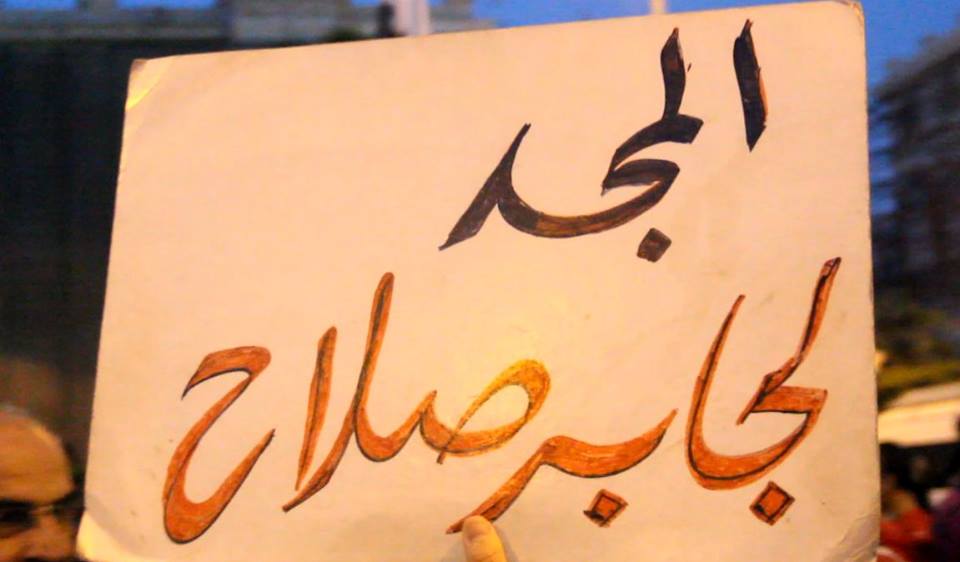 المجد
لجابر صلاح